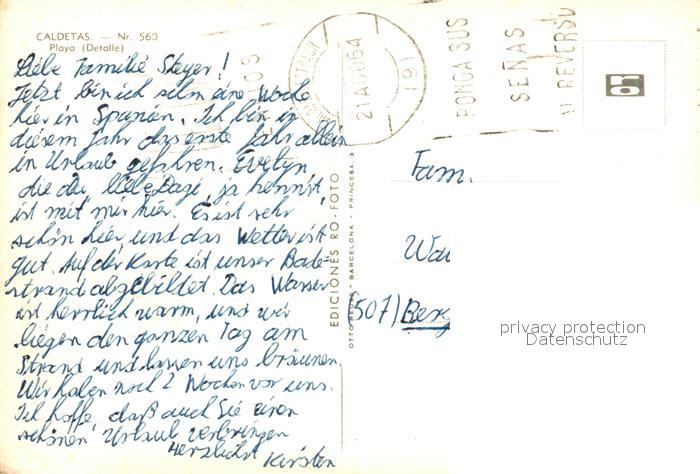 CALDETAS. — Nr. 560
Playa (Detalle)
Liebe Familie Steyer!
Jetzt bin ich schon eine Woche
hier in Spanien. Ich bin in
diesem Jahr das erste Jahr allein
in Urlaub gefahren. Evelyn
die du, liebe Dagi, ja kennst,
ist mit mir hier. Es ist sehr
schön hier und das Wetter ist
gut. Auf der Karte ist unser Bade-
strand abgebildet. Das Wasser
ist herrlich warm, und wir
liegen den ganzen Tag am
Strand und lassen uns bräunen.
Wir haben noch 2 Wochen vor uns.
Ich hoffe, daß auch Sie einen
schönen Urlaub verbringen
Herzlichst Kirsten
EDICIONES RO-FOTO
BARCELONA - PRINCESA, 3
21 AGO 64
PONGA SUS
SEÑAS
REVERSO
Fam.
(507) Berg
privacy protection
Datenschutz